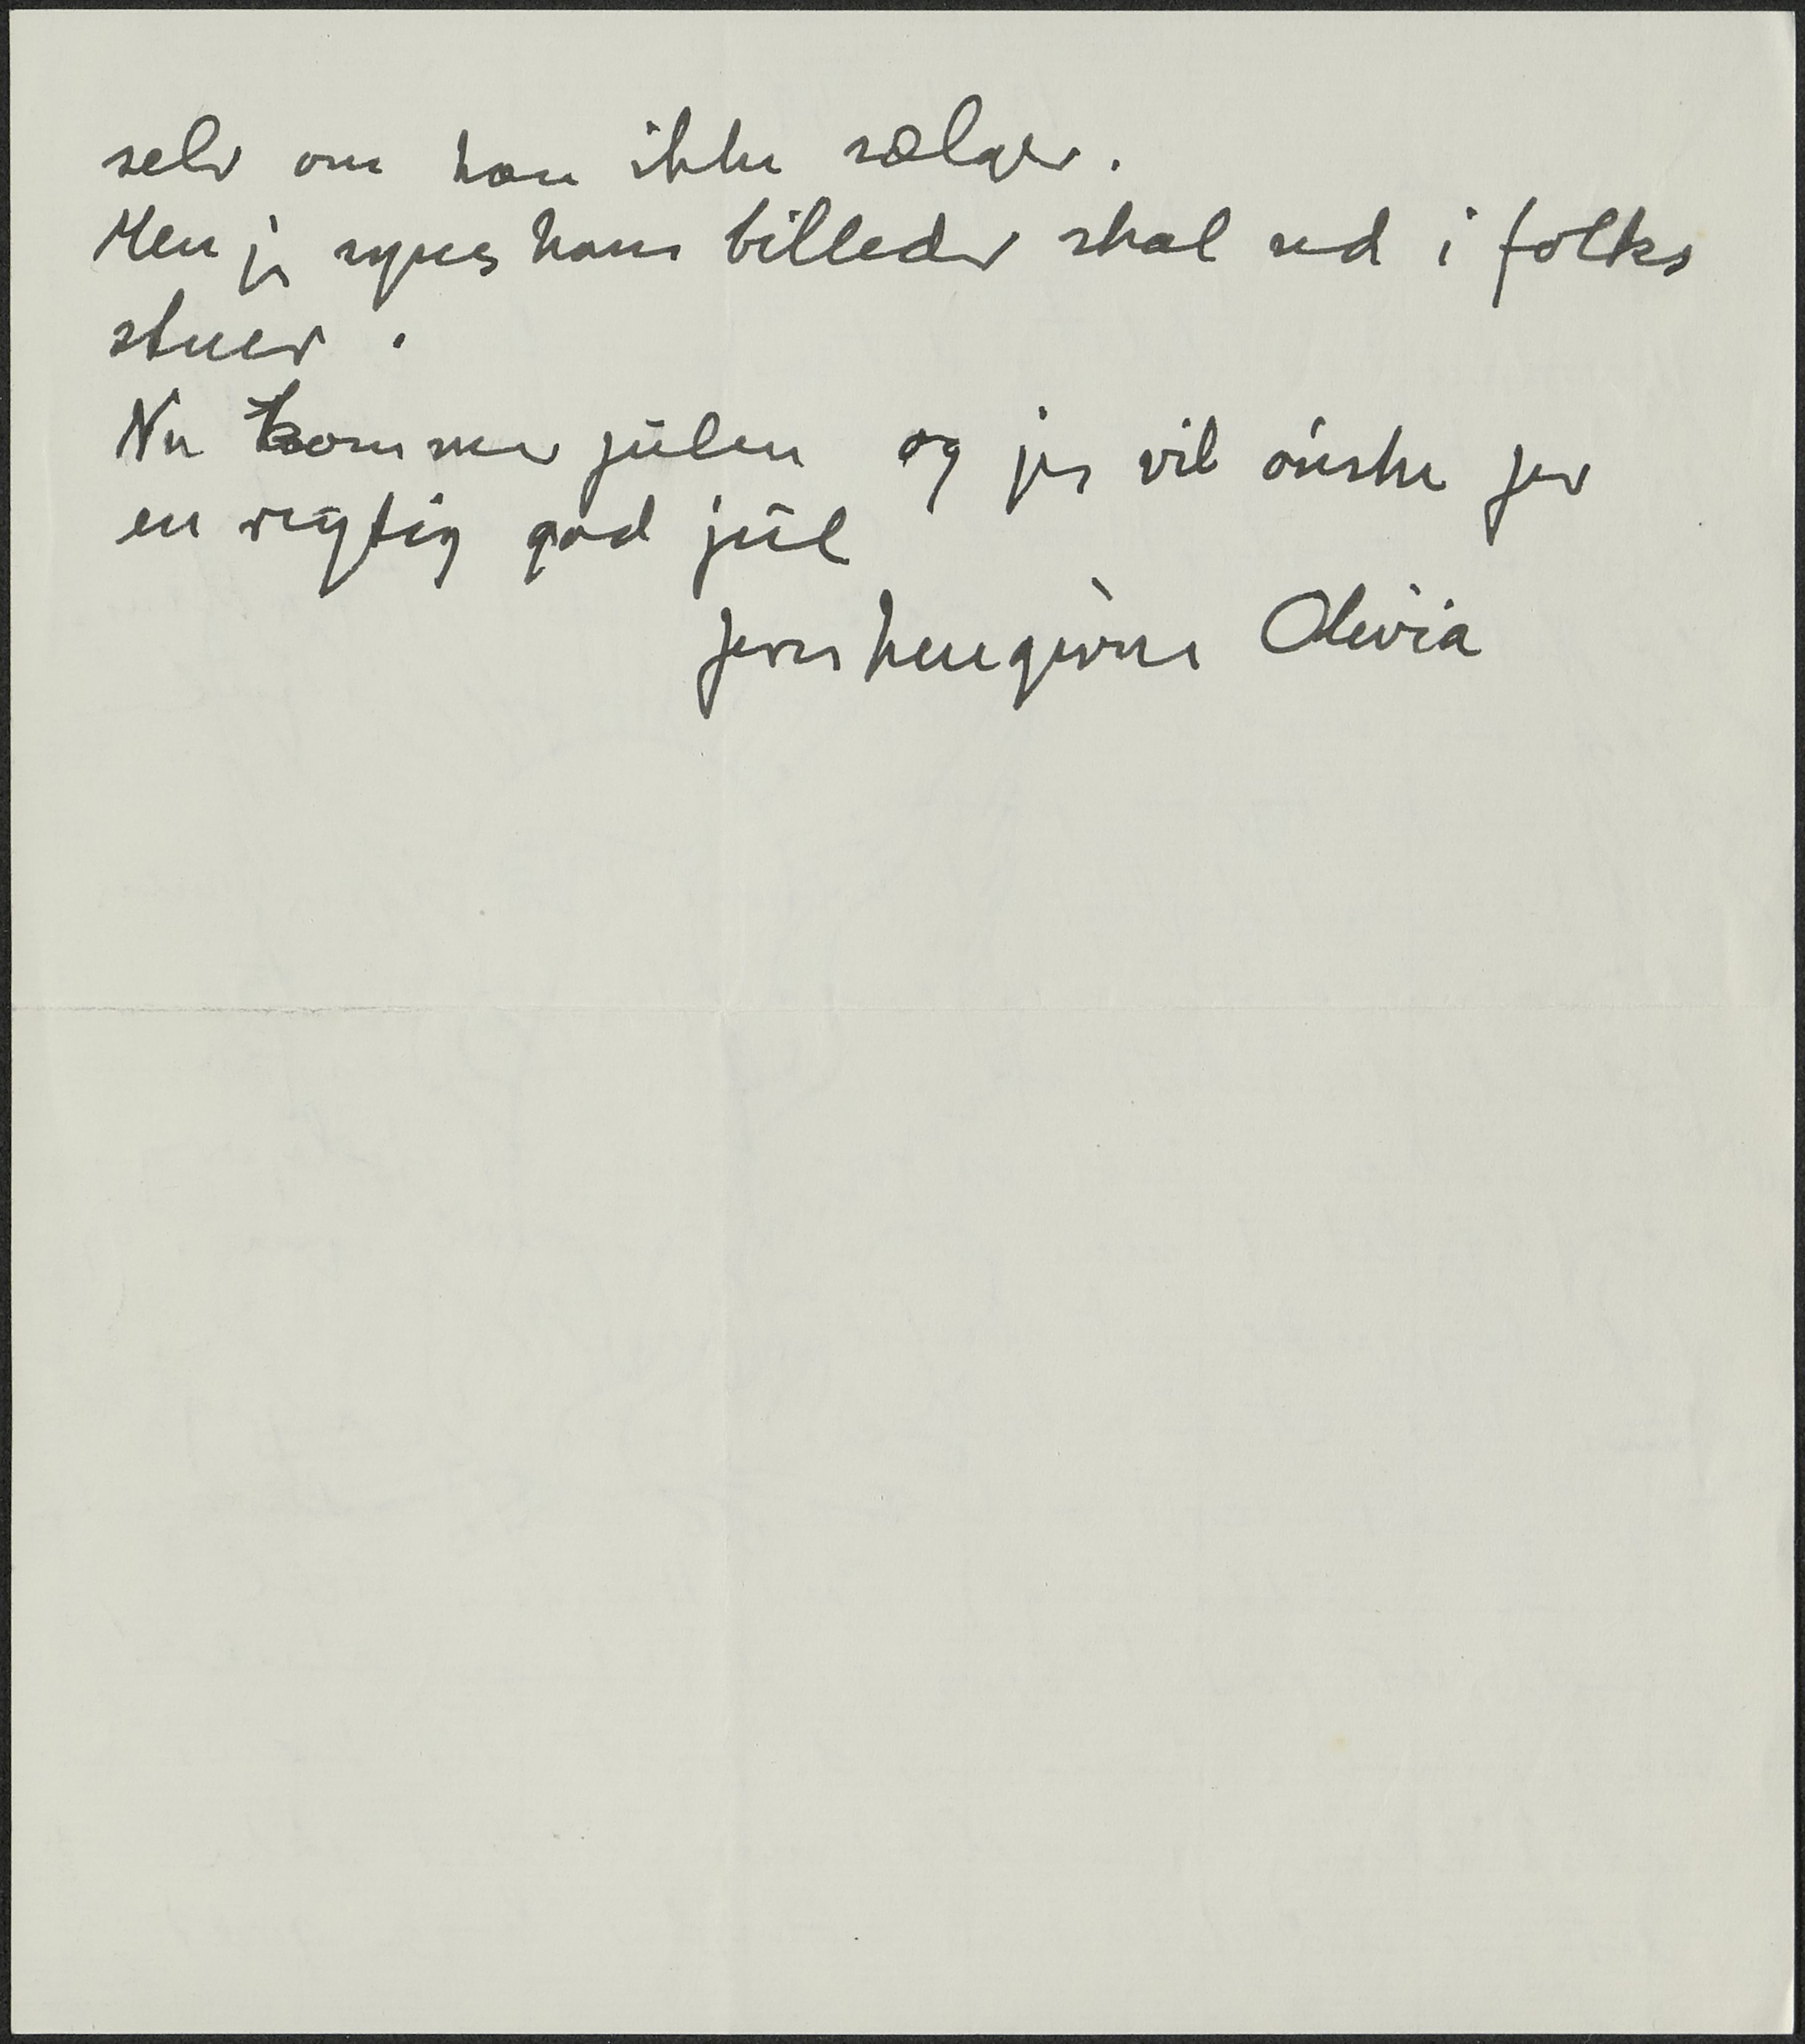 selv om han ikke sælger.
Men jeg synes hans billeder skal ud i folks
stuer.
Nu kommer julen og jeg vil ønske jer
en rigtig god jul
jeres hengivne Olivia